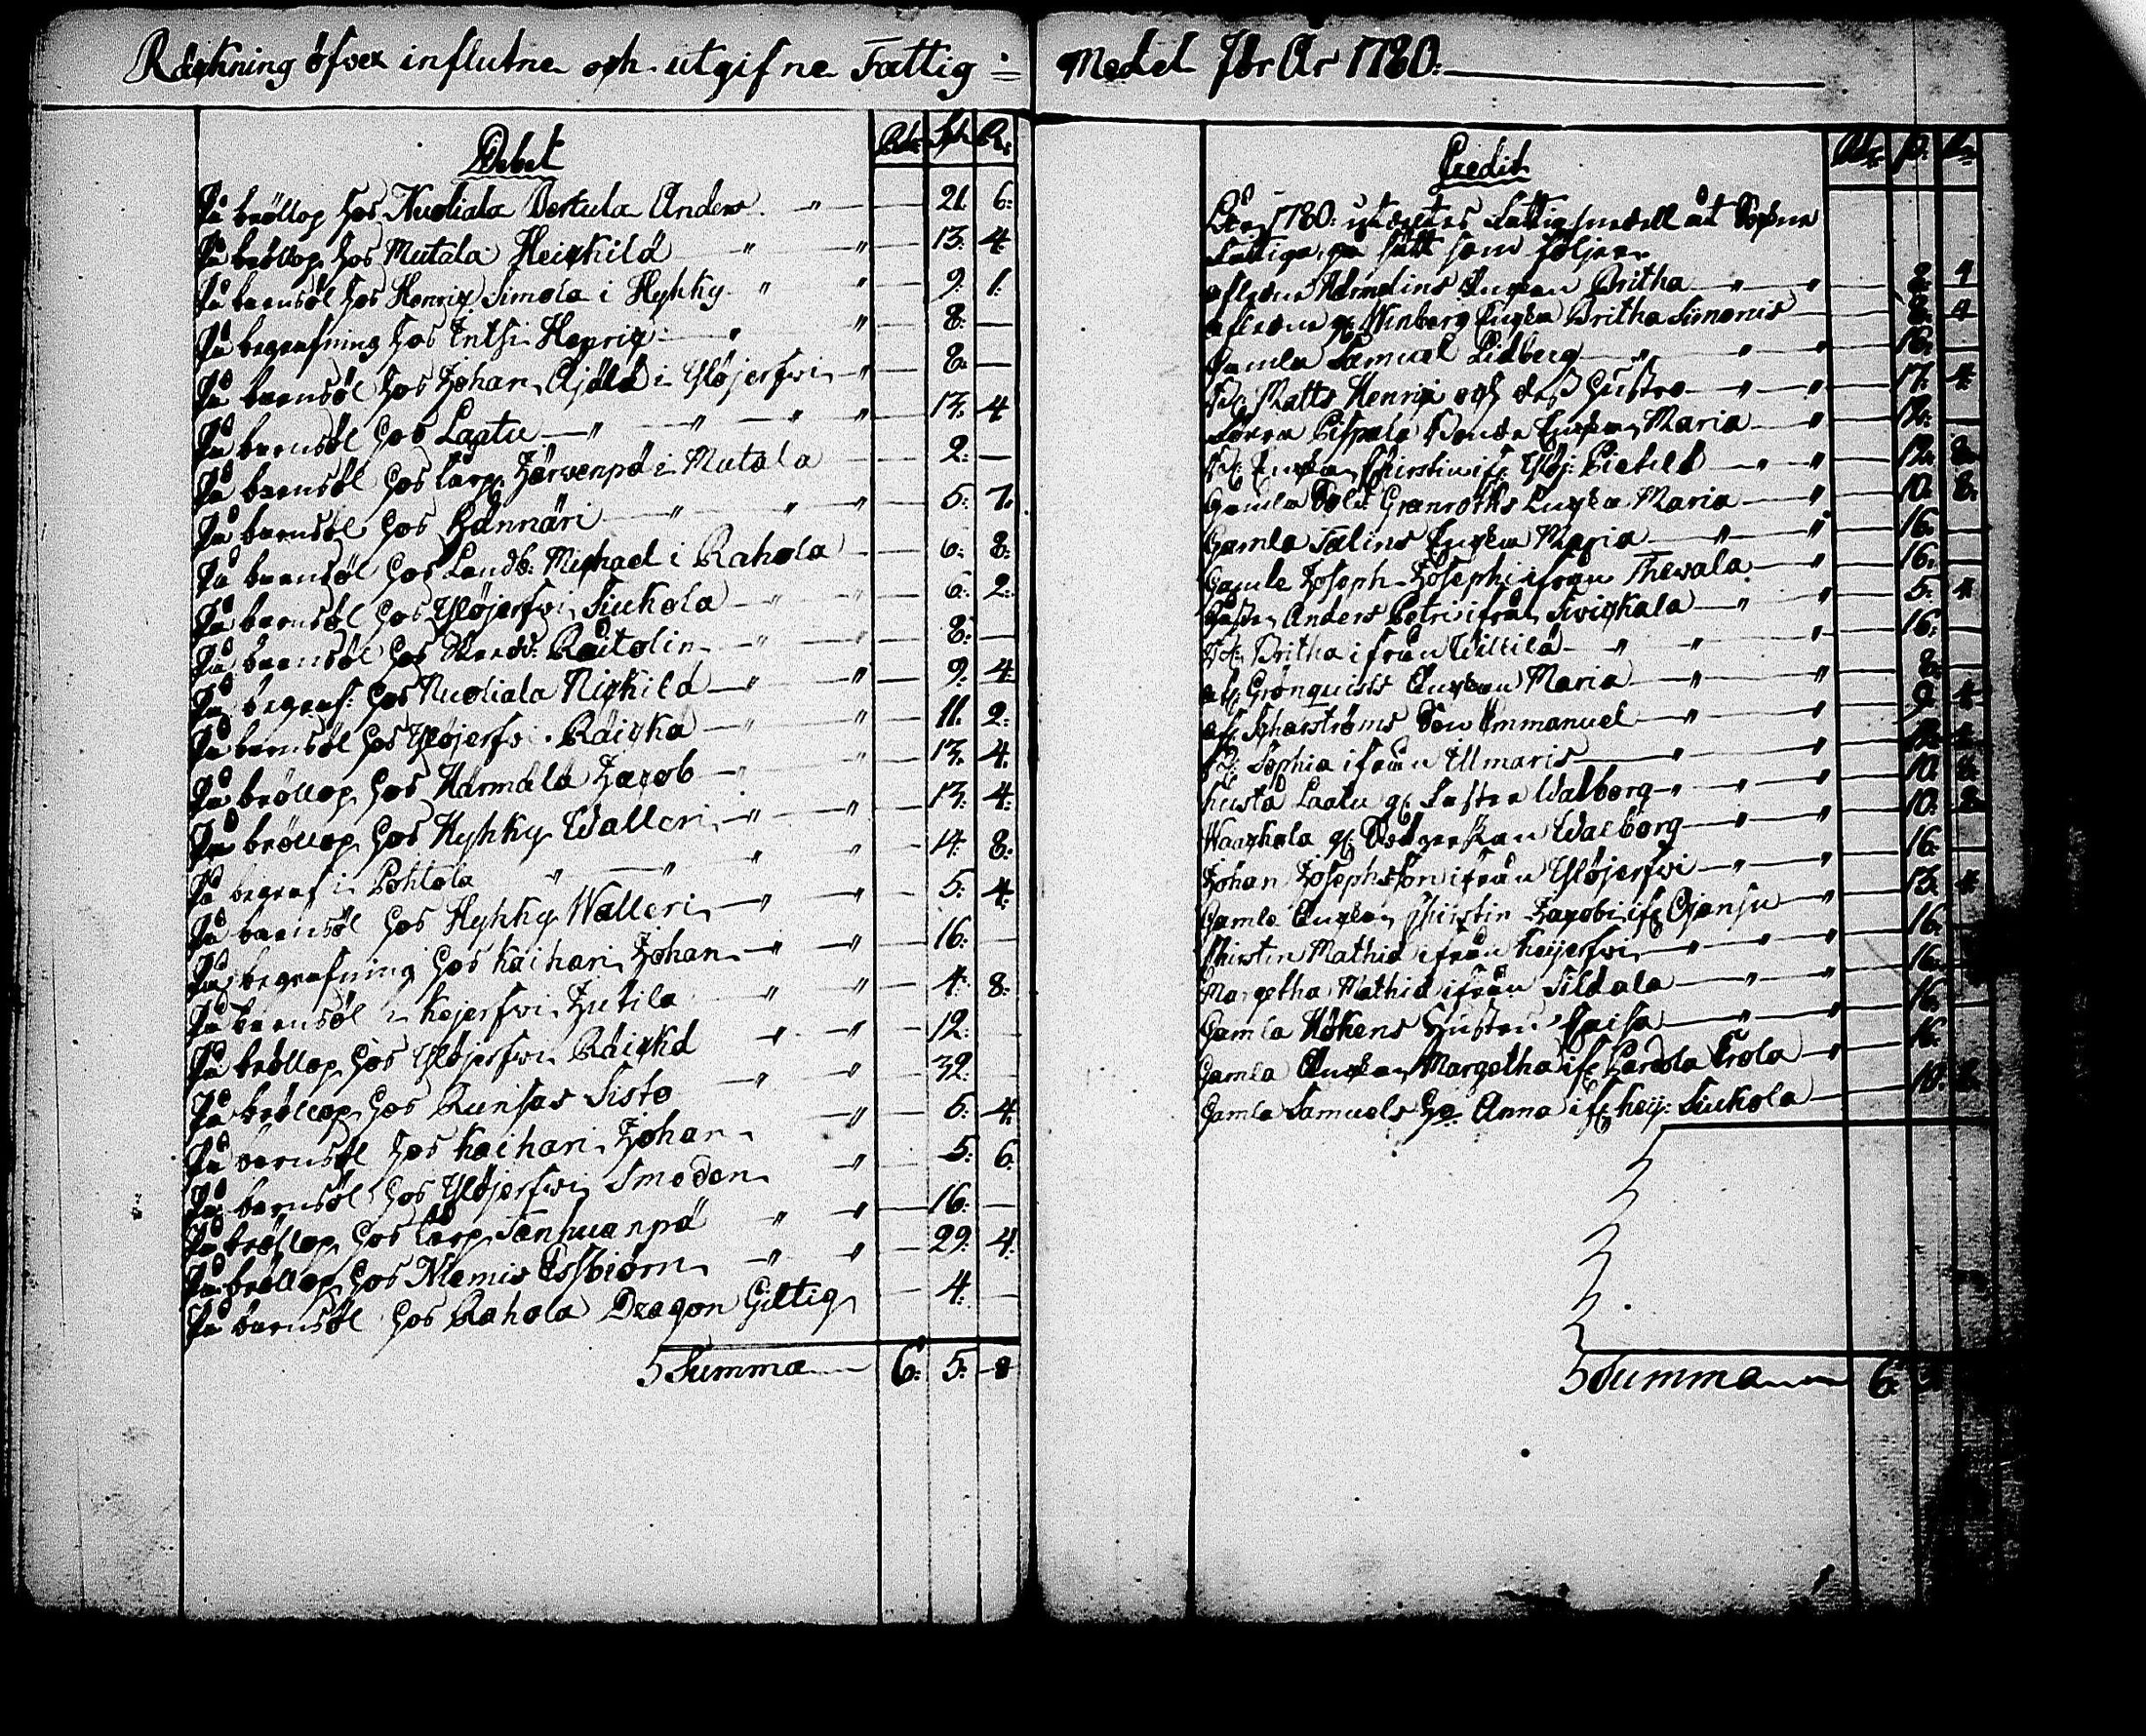 Räckning öfver influtne och utgifne Fattig = Medel för År 1780.
Debet
Rd: Sch R:
På bröllop hos Nuoliala Pertula Anders " 21. 6:
På bröllop hos Mutala Heickilä " " 13. 4.
På barnsöl hos Henric Simola i Hyhky " " 9. 1.
På begrafning hos Entsi Henric " " 8. —
På barnsöl hos Johan Äjälä i Ylöjerfvi " 8. —
På barnsöl hos Laatu " " " " 13. 4
På barnsöl hos torp. Järvenpä i Mutala 2. —
På barnsöl hos Hännäri " " " 5. 7.
På barnsöl hos Landb: Michael i Rahola 6. 8.
På barnsöl hos Ylöjerfvi Siukola " " 6. 2.
På barnsöl hos Raitolin " " 8. —
På begraf: hos Nuoliala Nickilä " " 9. 4.
På barnsöl hos Ylöjerfvi Räickä " " 11. 2.
På bröllop hos Härmälä Jacob " " 13. 4.
På bröllop hos Hyhky Walleri " " 13. 4.
På begraf i Pohtola " " " 14. 8.
På barnsöl hos Hyhky Walleri " " 5. 4.
På begrafning hos Kaihari Johan " " 16. —
På barnsöl i Kejerfvi Jutila " " 4. 8.
På bröllop hos Ylöjerfvi Räickä " " 12.
På bröllop hos Runsas Sisto " " 32.
På barnsöl hos Kaihari Johan " 5. 4.
På barnsöl hos Ylöjerfvi Smeden " 5. 6.
På bröllop hos torp. Tanhuanpä " " 16. —
På bröllop hos Niemis Essbiörn " " 29. 4.
På barnsöl hos Rahola Dragon Giltig 4. —
Summa 6: 5. 8
Credit
År 1780: utdeltes Fattigmedell åt Sochne
Fattiga på sätt som följer.
afledne Härmelins Enckan Britha " " 8. 4
afledne Winberg Enckan Britha Simonis 8. 4
Gamla Samuel Lidberg " " " 16.
Matts Henric och dess hustro " " 17. 4.
Pispala Enckan Maria " 12. —
Enckan Chirstin if: Ylöj: Pietilä " " 12. 8.
Gamla Sold: Granroths Enckan Maria " 10. 8.
Gamla Talins Enckan Maria " " 16. —
Gamle Joseph Josephi ifrån Thevala " 16. —
Anders Petri ifrån Svickala " " 5. 4
Britha ifrån Willilä " " " 16. —
af: Grönquists Enckan Maria " " 8. —
Son Emmanuel " " 9. 4
Sophia ifrån Illmaris " "
Laatu Walborg " " " 10. 8.
Walborg " " 10. 8
Johan Josephsson ifrån Ylöjerfvi " " 16.
Gamla Enckan Chirstin Jacobi if: Ojansu " 13. 4
Chirstin Mathiæ ifrån Keijerfvi " " " 16.
Margetha Mathiæ ifrån Sildala " " 16.
Gamla Hökens hustru Caisa " " 16.
Gamla Enckan Margetha if: Erola " 16.
Gamla Samuels Anna if: Keij: Siukola 10. 8.
Summa 6: